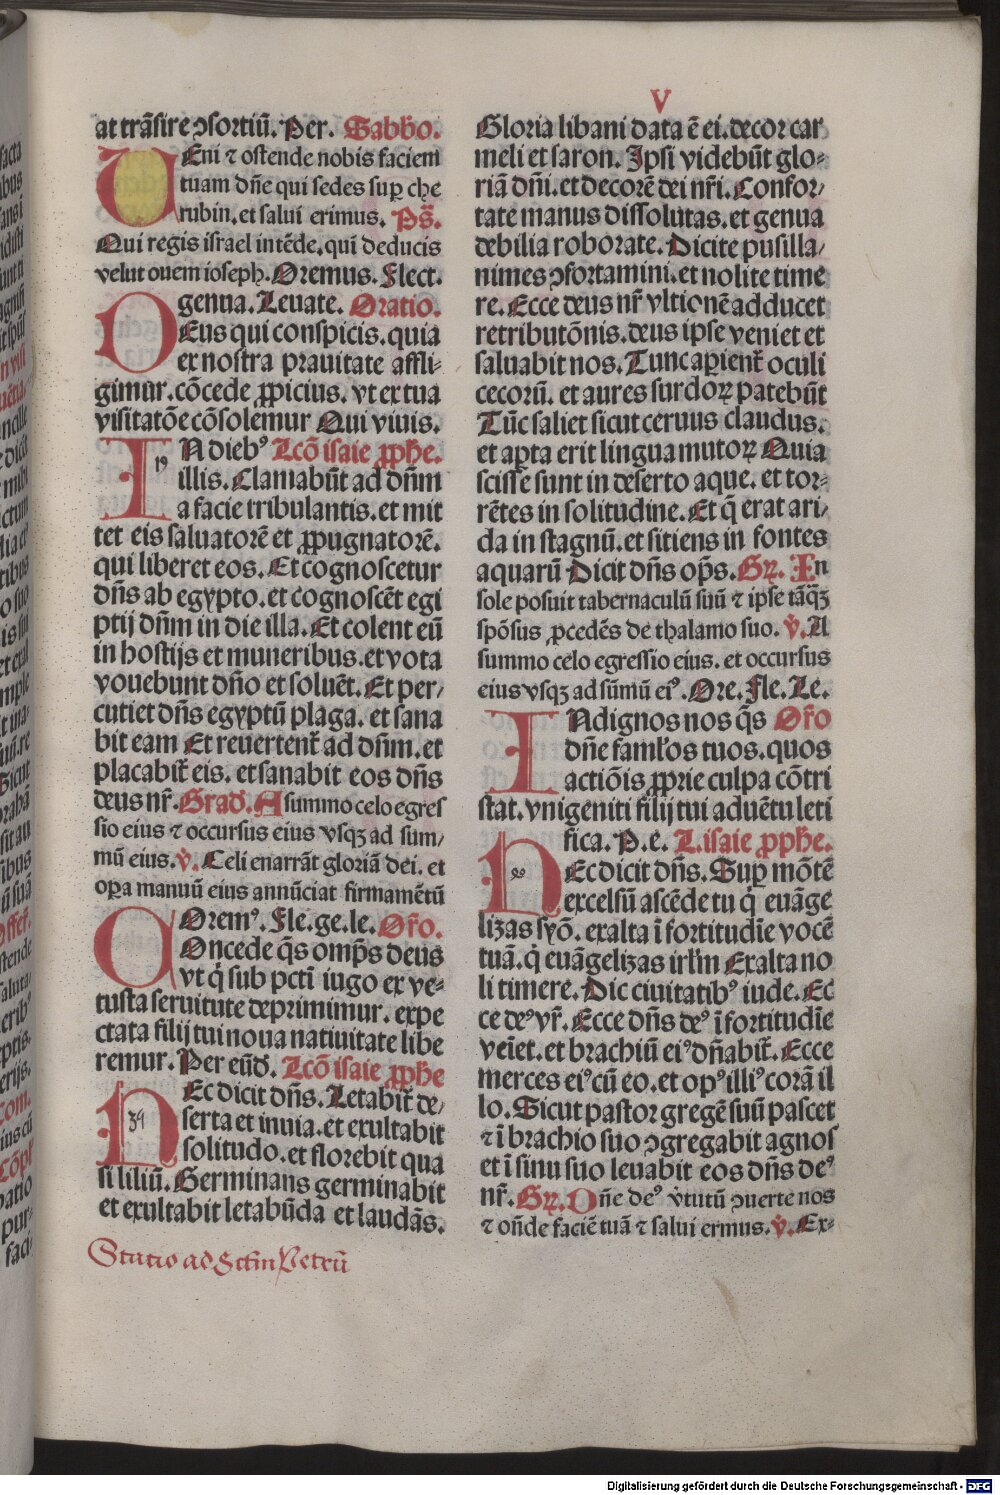 V
at trāsire ↄsortiū. Per. Sabbo.
VEni ⁊ ostende nobis faciem
tuam dn̄e qui sedes sup̱ che
rubin. et salui erimus. Ps̄.
Qui regis israel intēde. qui deducis
velut ouem ioseph. Oremus. Flect.
genua. Leuate. Oratio.
DEus qui conspicis. quia
ex nostra prauitate affli-
gimur. cōcede ꝓpicius. vt ex tua
visitatōe cōsolemur Qui viuis.
IN dieb⁹ Lcō isaie ꝓphe.
19
illis. Clamabūt ad dn̄m
a facie tribulantis. et mit
tet eis saluatorē et ꝓpugnatorē.
qui liberet eos. Et cognoscetur
dn̄s ab egypto. et cognoscēt egi
ptij dn̄m in die illa. Et colent eū
in hostijs et muneribus. et vota
vouebunt dn̄o et soluēt. Et per/
cutiet dn̄s egyptū plaga. et sana
bit eam Et reuertent᷑ ad dn̄m. et
placabit᷑ eis. et sanabit eos dn̄s
deus nr̄. Grad. A summo celo egres
sio eius ⁊ occursus eius vsqꝫ ad sum/
mū eius. v̇. Celi enarrāt gloriā dei. et
oꝑa manuū eius annūciat firmamētū
Orem⁹. Fle. ge. le. Or̄o.
COncede q̄s omp̄s deus
vt q̇ sub pctī iugo ex ve-
tusta seruitute deprimimur. expe
ctata filij tui noua natiuitate libe
remur. Per eūd. Lcō isaie ꝓphe
HEc dicit dn̄s. Letabit᷑ de/
39
serta et inuia. et exultabit
solitudo. et florebit qua
si liliū. Germinans germinabit
et exultabit letabūda et laudās.
Statio ad Sctm Petrū
Gloria libani data ē ei. decor car
meli et saron. Ipsi videbūt glo-
riā dn̄i. et decorē dei nr̄i. Confor/
tate manus dissolutas. et genua
debilia roborate. Dicite pusilla/
nimes ↄfortamini. et nolite time
re. Ecce deus nr̄ vltionē adducet
retributōnis. deus ipse veniet et
saluabit nos. Tunc aꝑient᷑ oculi
cecorū. et aures surdoꝝ patebūt
Tūc saliet sicut ceruus claudus.
et aꝑta erit lingua mutoꝝ Quia
scisse sunt in deserto aque. et tor-
rētes in solitudine. Et q̄ erat ari/
da in stagnū. et sitiens in fontes
aquarū Dicit dn̄s op̄s. Gꝝ. In
sole posuit tabernaculū suū ⁊ ipse tāqꝫ
spōsus ꝓcedēs de thalamo suo. v̇. A
summo celo egressio eius. et occursus
eius vsqꝫ ad sūmū ei⁹. Ore. Fle. Le.
INdignos nos q̄s Or̄o
dn̄e famlos tuos. quos
actiōis ꝓprie culpa cōtri
stat. vnigeniti filij tui aduētu leti
fica. P. e. L. isaie ꝓphe.
HEc dicit dn̄s. Suꝑ mōtē
excelsū ascēde tu q̇ euāge
lizas syō. exalta ī fortitudīe vocē
tuā. q̇ euāgelizas irl̄m Exalta no
li timere. Dic ciuitatib⁹ iude. Ec
ce de⁹ vr̄. Ecce dn̄s de⁹ ī fortitudīe
veīet. et brachiū ei⁹ dn̄abit᷑. Ecce
merces ei⁹ cū eo. et op⁹ illi⁹ corā il
lo. Sicut pastor gregē suū pascet
⁊ ī brachio suo ↄgregabit agnos
et ī sinu suo leuabit eos dn̄s de⁹
nr̄. Gꝝ. Dn̄e de⁹ v̇tutū ↄuerte nos
⁊ on̄de faciē tuā ⁊ salui ermus. v̇. Ex-
Digitalisierung gefördert durch die Deutsche Forschungsgemeinschaft - DFG